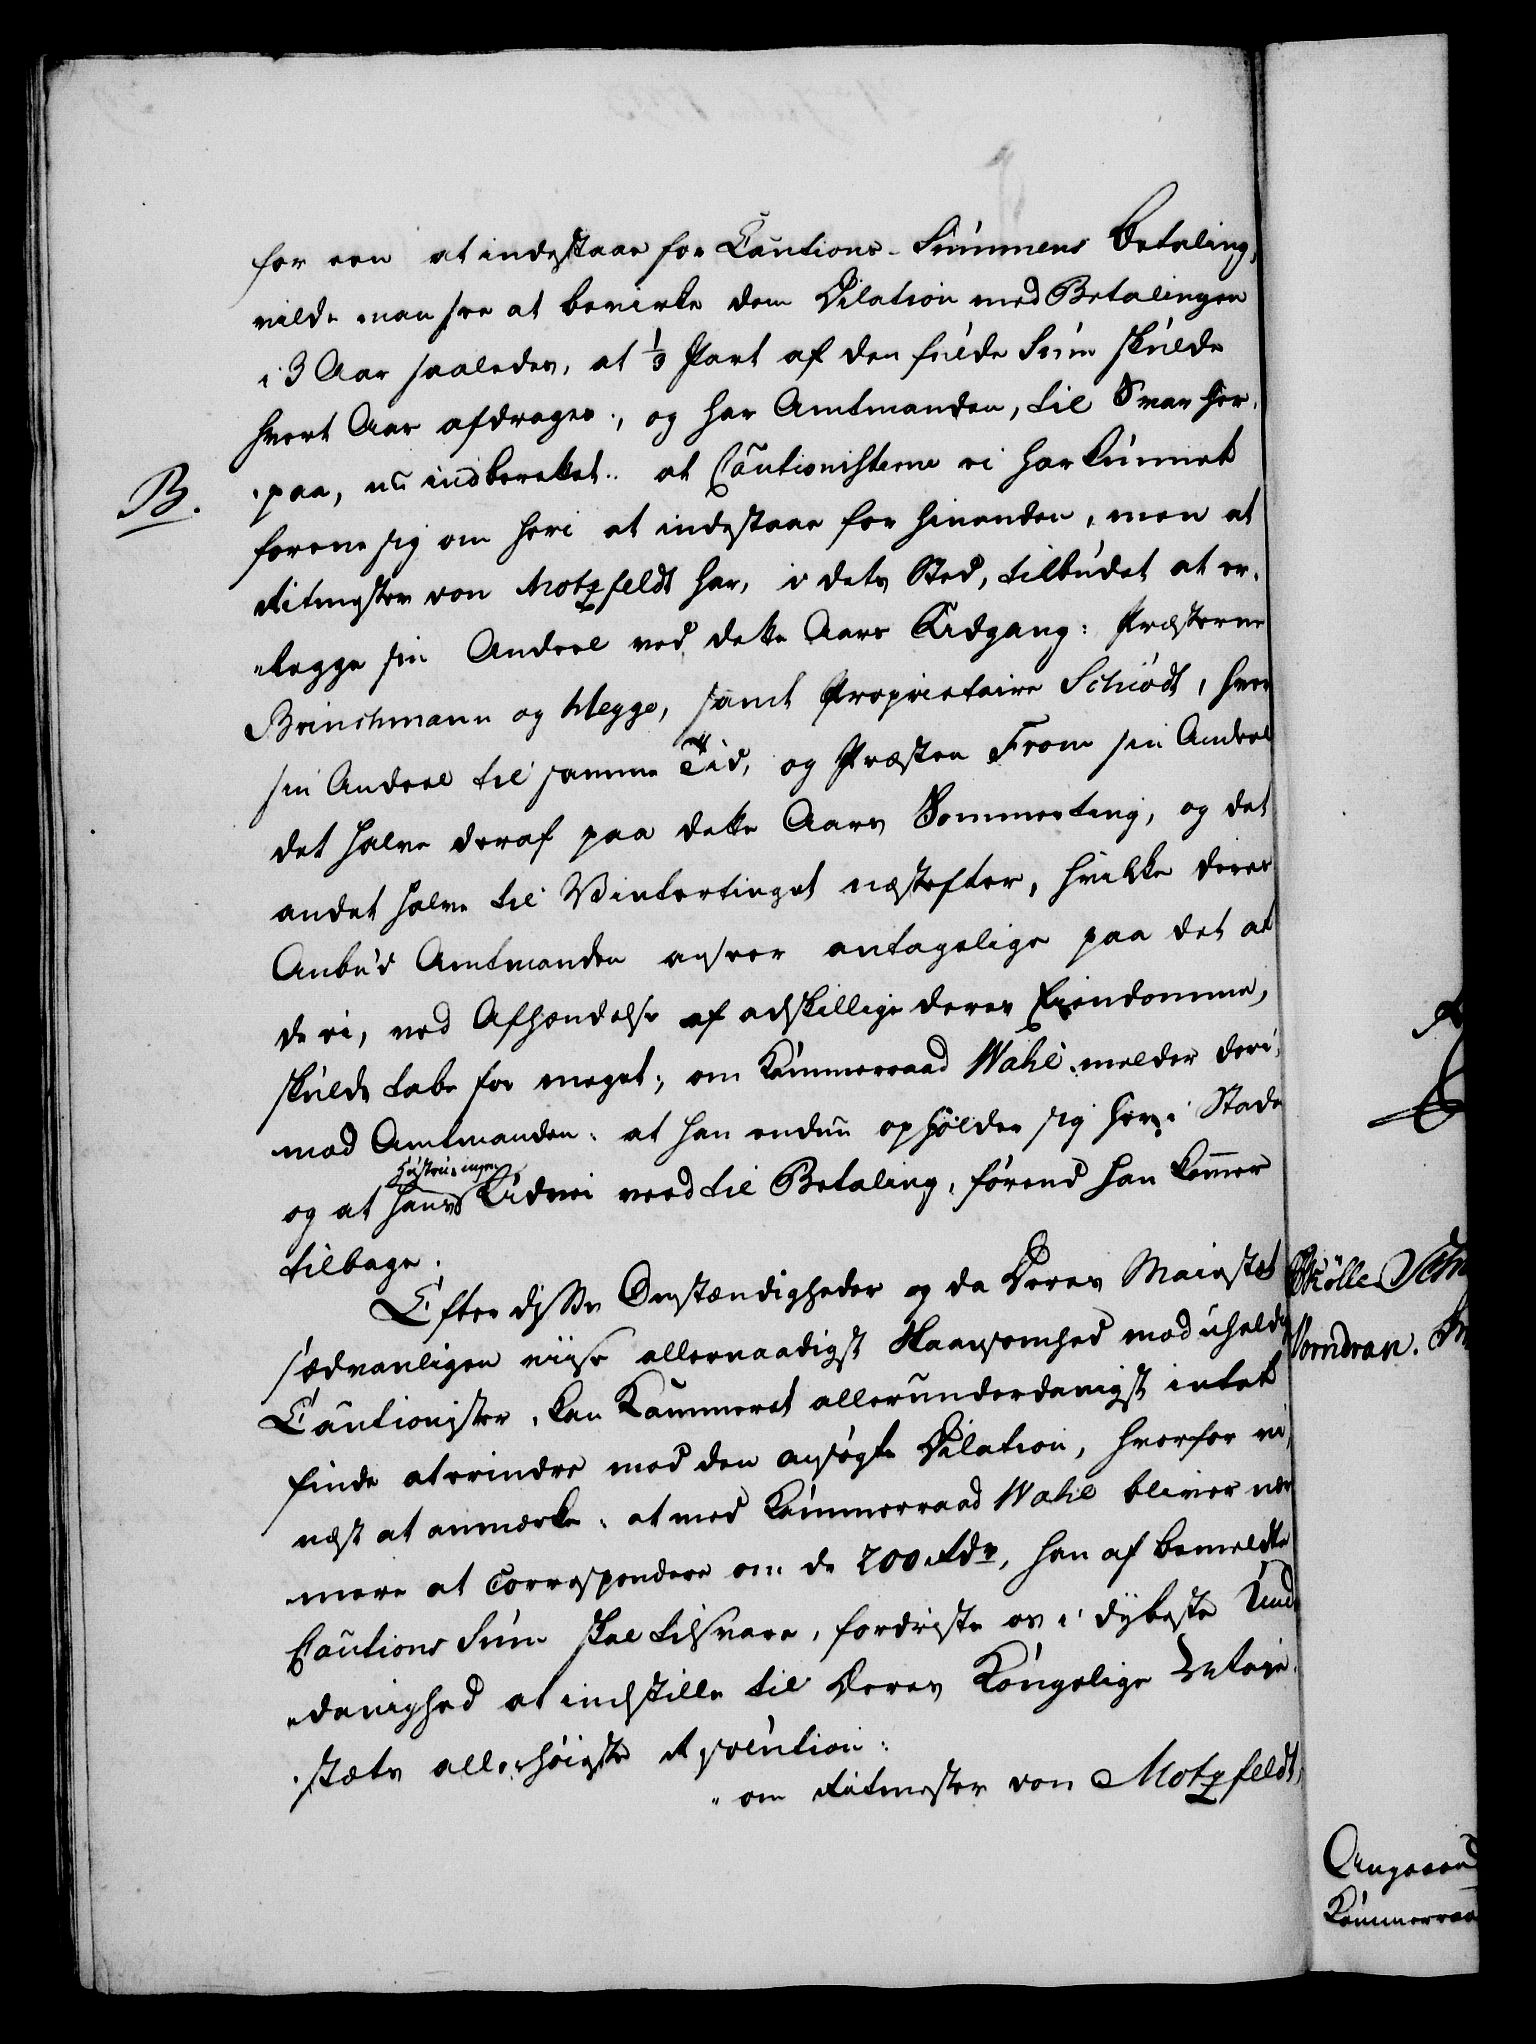 for een at indestaae for Cautions-Summens Betaling,
vilde man see at bevirke dem Dilation med Betalingen
i 3 Aar saaledes, at 1/3 Part af den fulde Sum skulde
hvert Aar afdrages, og har Amtmanden, til Svar her-
paa, nu indberettet: at Cautionisterne ei har kunnet
B.
forene sig om heri at indestaae for hinanden, men at
Ritmester von Motzfeldt har, i dets Sted, tilbudet at er-
legge sin Andeel ved dette Aars Udgang: Præsterne
Brinchmann og Hegge, samt Proprietaire Schiödt, hver
sin Andeel til samme Tid, og Præsten From sin Andeel
det halve deraf paa dette Aars Sommerting, og det
andet halve til Vintertinget næstefter, hvilke deres
Anbud Amtmanden anseer antagelige paa det at
de ei, ved Afhændelse af adskillige deres Eiendomme,
skulde tabe for meget; om Kammerraad Wahl melder deri-
mod Amtmanden: at han endnu opholder sig her i Staden
og at hans Udvei veed til Betaling, förend han kommer
tilbage.
Efter disse Omstændigheder og da Deres Maiestet
sædvanligen viise allernaadigst Skaansomhed mod uheldige
Cautionister, kan Kammeret allerunderdanigst intet
finde at erindre mod den ansögte Dilation, hvorfor vi,
næst at anmærke: at med Kammerraad Wahl bliver nær-
mere at correspondere om de 200 Rdr, han af bemeldte
Cautions Sum skal tilsvare, fordriste os i dybeste Under-
danighed at indstille til Deres Kongelige Maje-
stæts allerhöieste Resolution:
om Ritmester von Motzfeldt,
Skölle
Vorndran.
Angaaend
Kammerraa